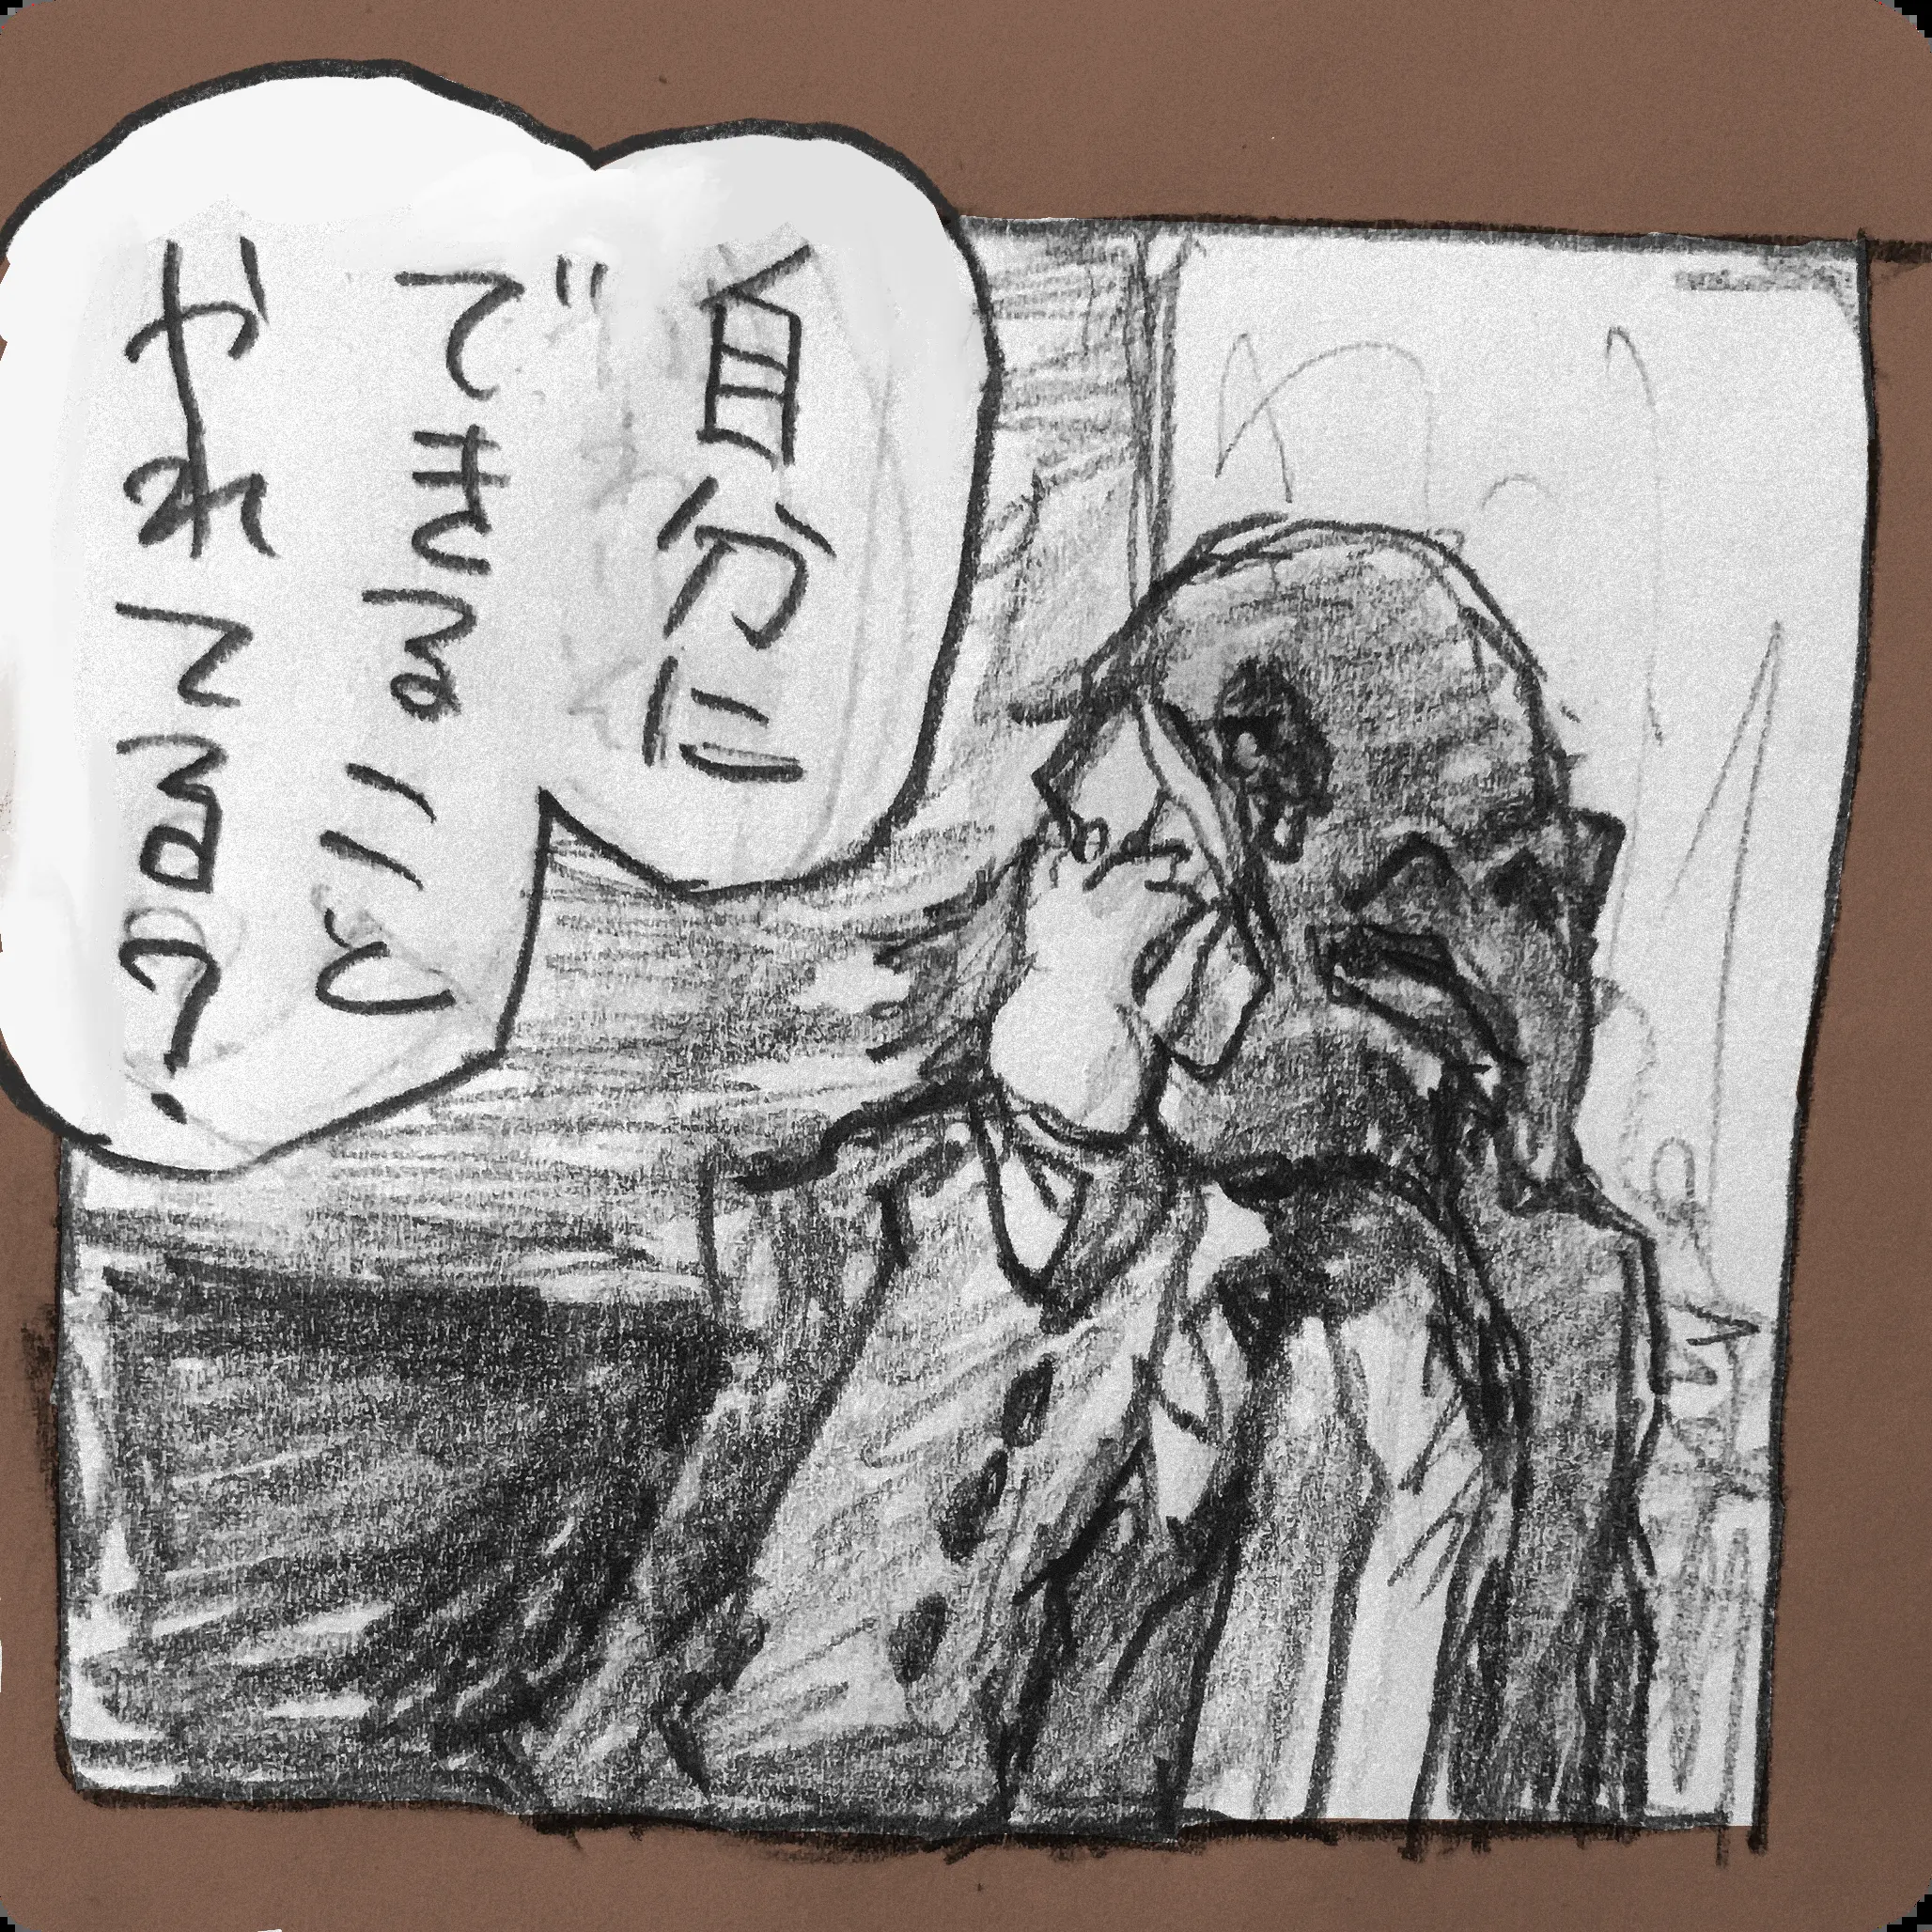 自分に
できること
やれてるの？